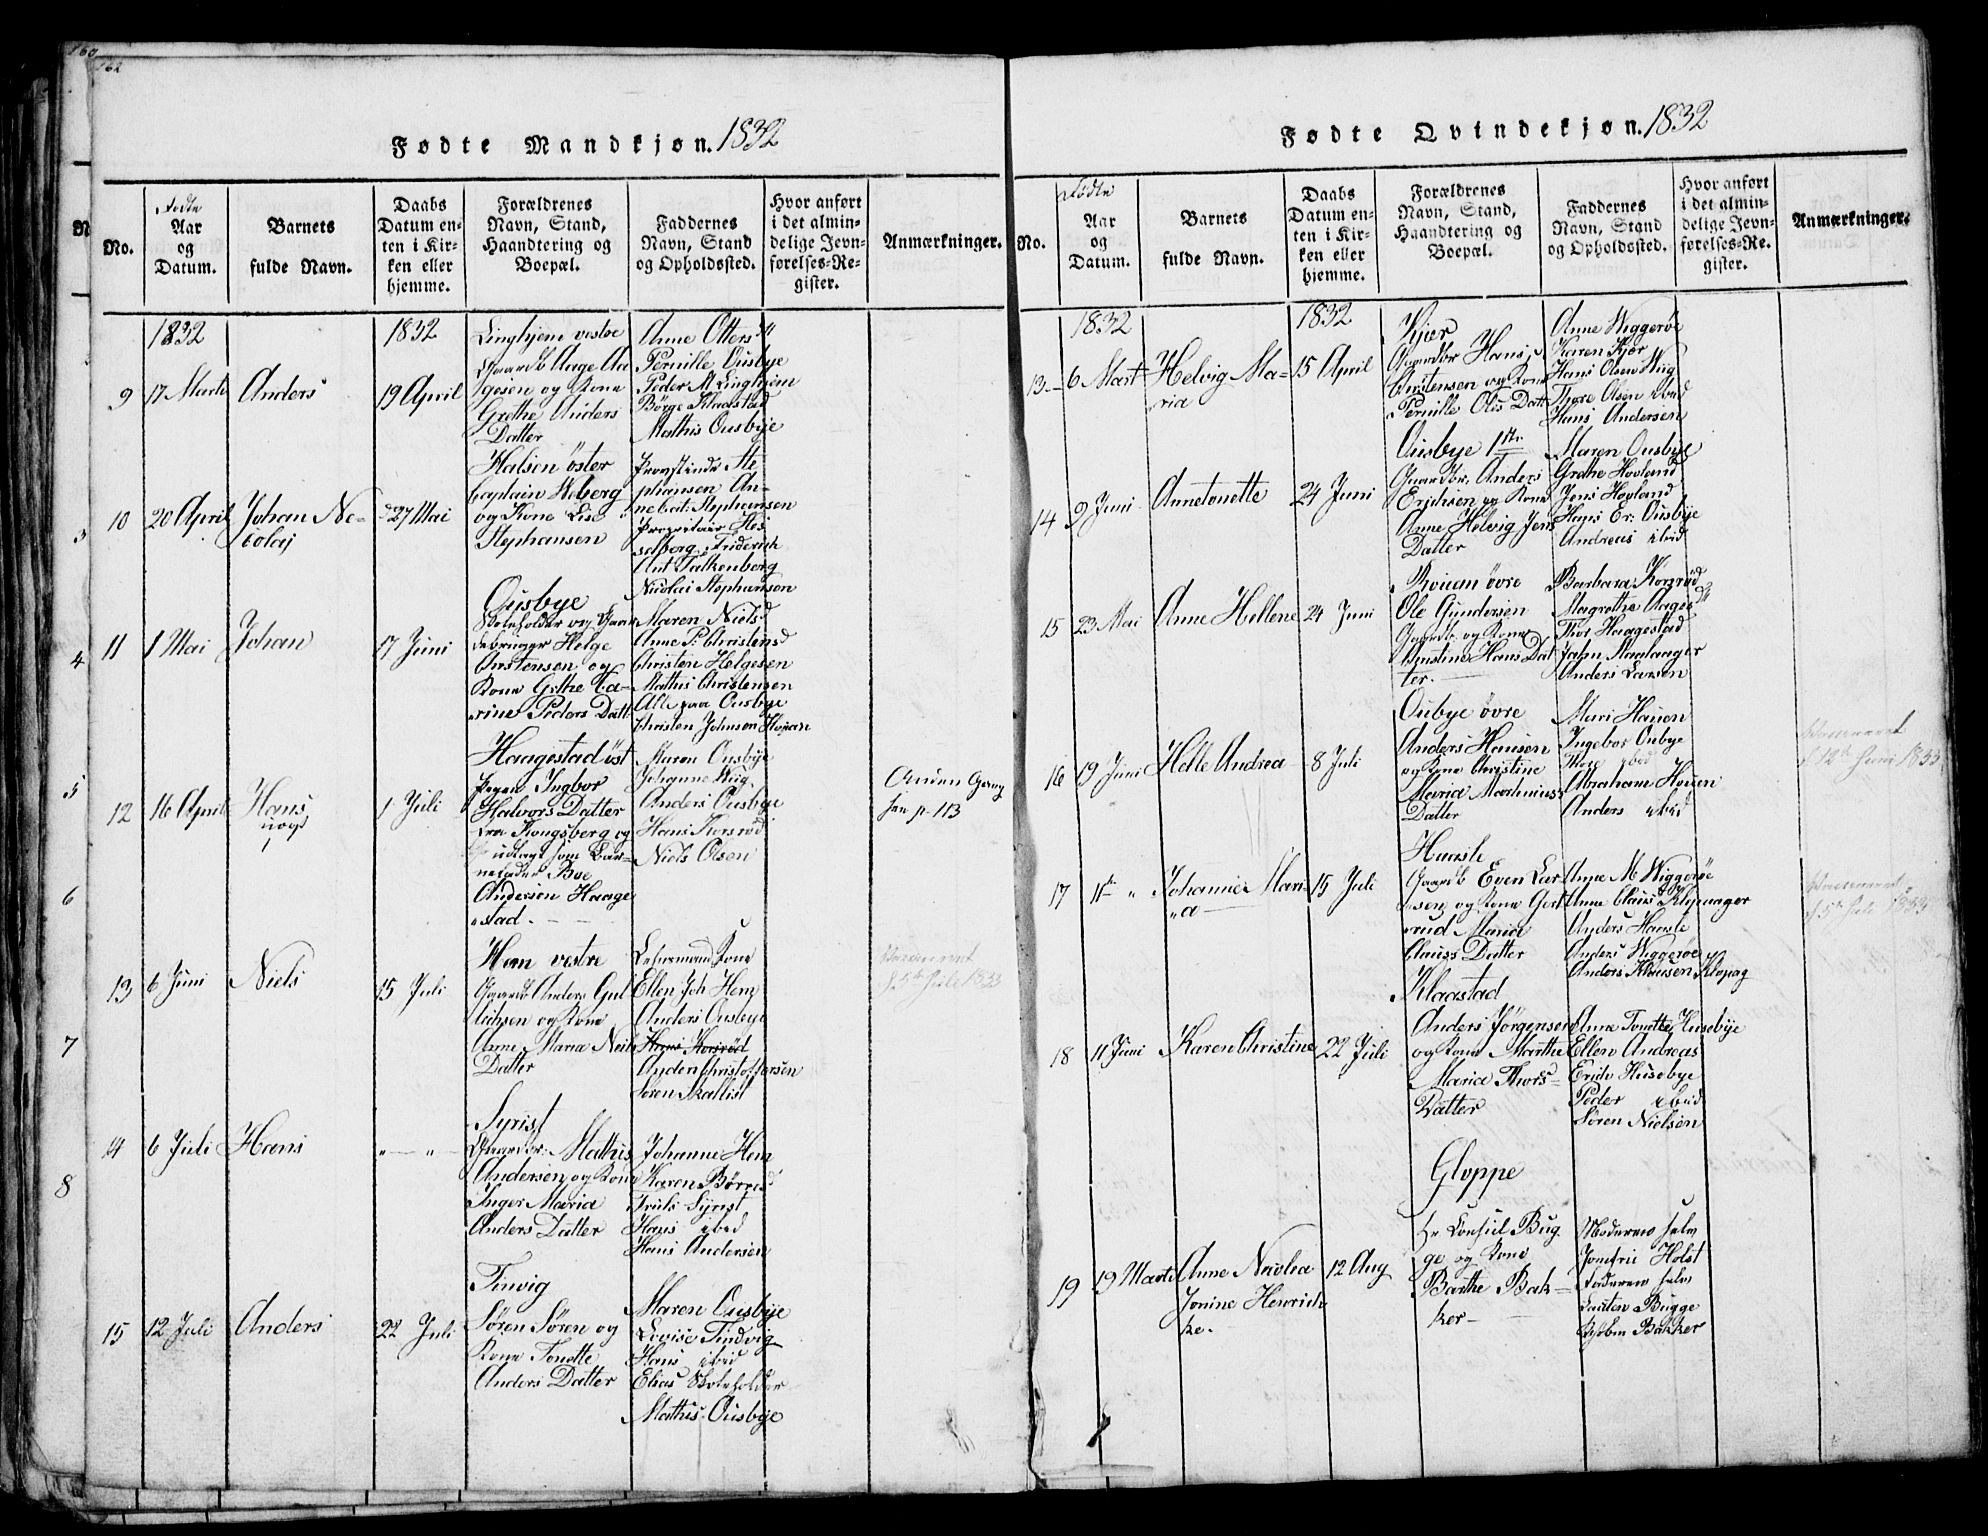 160
162
Fødte Mandkjøn. 1832
No.
Fødte
Aar
og
Datum.
Barnets
fulde Navn.
Daabs
Datum en-
ten i Kir-
ken eller
hjemme.
Forældrenes
Navn, Stand,
Haandtering og
Boepæl.
Faddernes
Navn, Stand
og Opholdssted.
Hvor anført
i det almin-
delige Jevn-
førelses-Re-
gister.
Anmærkninger.
1832
1832
9
17 Marts
Anders
19 April
Linghjem vestre
Gaardb Aage Aa
gesen og Kone
Grethe Anders
Datter
Anne Otters
Pernille Ousbye
Peder M. Linghjem
Börge Klaastad
Mathis Ousbye
10
20 April
Johan Ni-
colaj
27 Mai
Halsen öster
Captain Weberg
og Kone Lise
Stephansen
Provstinde Ste
phansen An-
ne Cat: Stephansen
Proprietair Hes
selberg, Friderich
Ant Falkenberg
Nicolai Stephansen
11
1 Mai
Johan
17 Juni
Ousbye
Skoleholder og Gaar
debruger Helge
Christensen og
Kone Grethe Ca-
rine Peders Datt
Maren Niels
Anne P. Christens
Christen Helgesen
Mathis Christensen
Alle paa Ousbye
Christen Johnsen Klopan
12
16 April
Hans
uægt
1 Juli
Haagestad öst
Pigen Ingbor
Halvors Datter
fra Kongsberg og
udlagt som Bar-
nefader Boe
Andersen Haage
stad.
Maren Ousbye
Johanne Wiig
Anders Ousbye
Hans Korsröd
Niels Olsen
Anden Gang
see p. 113
13
6 Juni
Niels
15 Juli
Hem vestre
Gaardb Anders Gul
lichsen og Kone
Anne Maria Neils
Datter
Lehnsmand Kone
Ellen Joh Hem
Anders Ousbye
Hans Korsröd
Anden Christoffersen
Sören Skallist
14
6 Juli
Hans
" — "
Syrist
Gaardbr. Mathis
Andersen og Kone
Inger Maria
Anders Datter
Johanne Hem
Karen Börre
Truls Syrist
Hans ibid
Hans Andersen
15
12 Juli
Anders
22 Juli
Tinvig
Sören Sören og
Kone Tonette
Anders Datter
Maren Ousbye
Lovise Tindvig
Hans ibid
Elias Skoleholder
Mathis Ousbye
Fødte Qvindekjøn. 1832
No.
Fødte
Aar
og
Datum.
Barnets
fulde Navn.
Daabs
Datum en-
ten i Kir-
ken eller
hjemme.
Forældrenes
Navn, Stand,
Haandtering og
Boepæl.
Faddernes
Navn, Stand
og Opholdssted.
Hvor anført
i det almin-
delige Jevn-
førelses-Re-
gister.
Anmærkninger.
1832
1832
13
6 Mart
Helvig Ma-
ria
15 April
Kjær
Gaardbr Hans
Christensen og Kone
Pernille Oles Datt
Anne Wiggeröe
Karen Kjer
Hans Olsen Wiig
Thore Olsen ibid
Hans Andersen
14
9 Juni
Annetonette
24 Juni
Ousbye 1ste
Gaardbr. Anders
Erichsen og Kone
Anne Helvig Jens
Datter
Maren Ousbye
Grethe Hovland
Jens Hovland
Hans Er: Ousbye
Andreas ibid
15
23 Mai
Anne Hellene
24 Juni
Rouan øvre
Ole Gundersen
Gaardb. og Kone
Christine Hans Dat
ter.
Barbara Korsröd
Magrethe Aages
Thor Haagestad
John Maalanger
Anders Larsen
16
19 Juni
Helle Andrea
8 Juli
Oubye øvre
Anders Hansen
og Kone Christine
Maria Mathiass
Datter
Mari Hauen
Ingebor Oubye
Thore ibid
Abraham Houen
Anders ibid
Vaccineret
d 12te Juni 1833
17
11te "
Johanne Mari-
a
15 Juli
Haasle
Gaardb Even Lar
sen og Kone Gert
rud Maria
Clauss Datter
Anne M Wiggeröe
Anne Claus D Klopaager
Anders Haasle
Anders Wiggeröe
Anders Klausen Klopag
Vaccineret
d 5te Juli 1833
18
11 Juni
Karen Christine
22 Juli
Klaastad
Anders Jörgensen
og Kone Marthe
Maria Thors-
Datter
Anne Tonette Huseby
Ellen Andreas
Erich Husebye
Peder ibid
Sören Nielsen
19
19 Marts
Anne Nicolea
Jonine Henrich-
ke.
12 Aug
Gloppe
Hr Consul Bug
ge og Kone
Barthe Bak-
ker
Moderen selv
Jomfrue Holst
Faderen selv
Bugge
Bakker